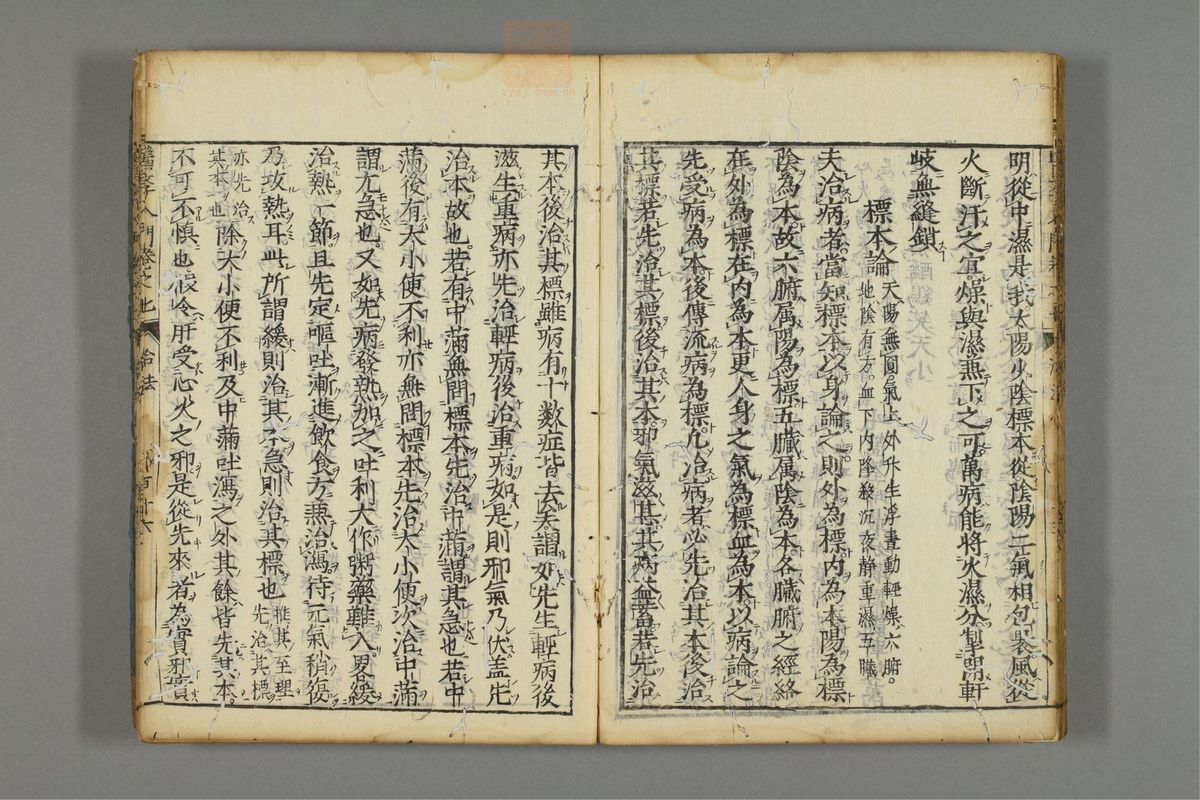 明從中濕是我太陽少陰標本從陰陽二氣相包裹風從
火斷汗之宜燥與濕兼下之可萬病能將火濕分掣開軒
岐無縫鎖
標本論
天陽無圓氣上外升生浮晝動輕燥六腑
地陰有方血下内降殺沉夜静重濕五臟
夫治病者當知標本以身論之則外為標内為本陽為標
陰為本故六腑属陽為標五臟属陰為本各臟腑之經絡
在外為標在内為本更人身之氣為標血為本以病論之
先受病為本後傳流病為標凡治病者必先治其本後治
其標若先治其標後治其本邪氣滋甚其病益蓄若先治
其本後治其標雖病有十數症皆去矣謂如先生輕病後
滋生重病亦先治輕病後治重病如是則邪氣乃伏盖先
治本故也若有中滿無問標本先治中滿謂其急也若中
滿後有大小便不利亦無問標本先治大小便次治中滿
謂尤急也又如先病發熱加之吐利大作粥藥難入畧緩
治熱一節且先定嘔吐漸進飲食方兼治瀉待元氣稍復
乃攻熱耳此所謂緩則治其本急則治其標也
推其至理
先治其標
亦先治
其本也
除大小便不利及中滿吐瀉之外其餘皆先其本
不可不慎也假令肝受心火之邪是從先來者為實邪實
醫學入門卷之七
治法